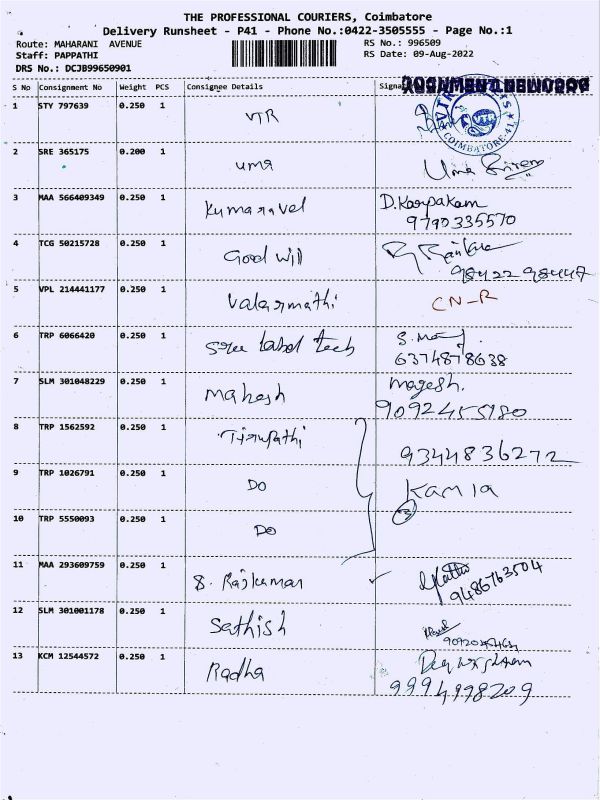 THE PROFESSIONAL COURIERS, Coimbatore
Delivery Runsheet - P41 - Phone No.:0422-3505555 - Page No.:1
Route: MAHARANI AVENUE RS No.: 996509
Staff: PAPPATHI RS Date: 09-Aug-2022
DRS No.: DCJB99650901
S No Consignment No Weight PCS Consignee Details
1 STY 797639 0.250 1 VTR
VTR
COIMBATORE-41
2 SRE 365175 0.200 1 uma Uma
3 MAA 566409349 0.250 1 Kumaravel D.Karpakam
9790335570
4 TCG 50215728 0.250 1 Good will
5 VPL 214441177 0.250 1 Valarmathi CN-R
6 TRP 6066420 0.250 1 Sree Label Tech
7 SLM 301048229 0.250 1 Mahesh Magesh.
8 TRP 1562592 0.250 1 Tirupathi 9344836272
9 TRP 1026791 0.250 1 DO Kamla
10 TRP 5550093 0.250 1 DO
11 MAA 293609759 0.250 1 S. Rajkumar 9486763504
12 SLM 301001178 0.250 1 Sathish
13 KCM 12544572 0.250 1 Radha
9994998209